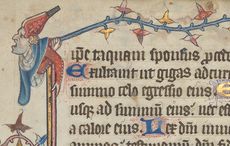 ip̄e tanquam sponſus proced
Exultauit ut gigas ad curr
ſummo celo egreſſio eius.
uſq; ad ſummū eius: nec
a caloꝛe eius. Lex dn̄i